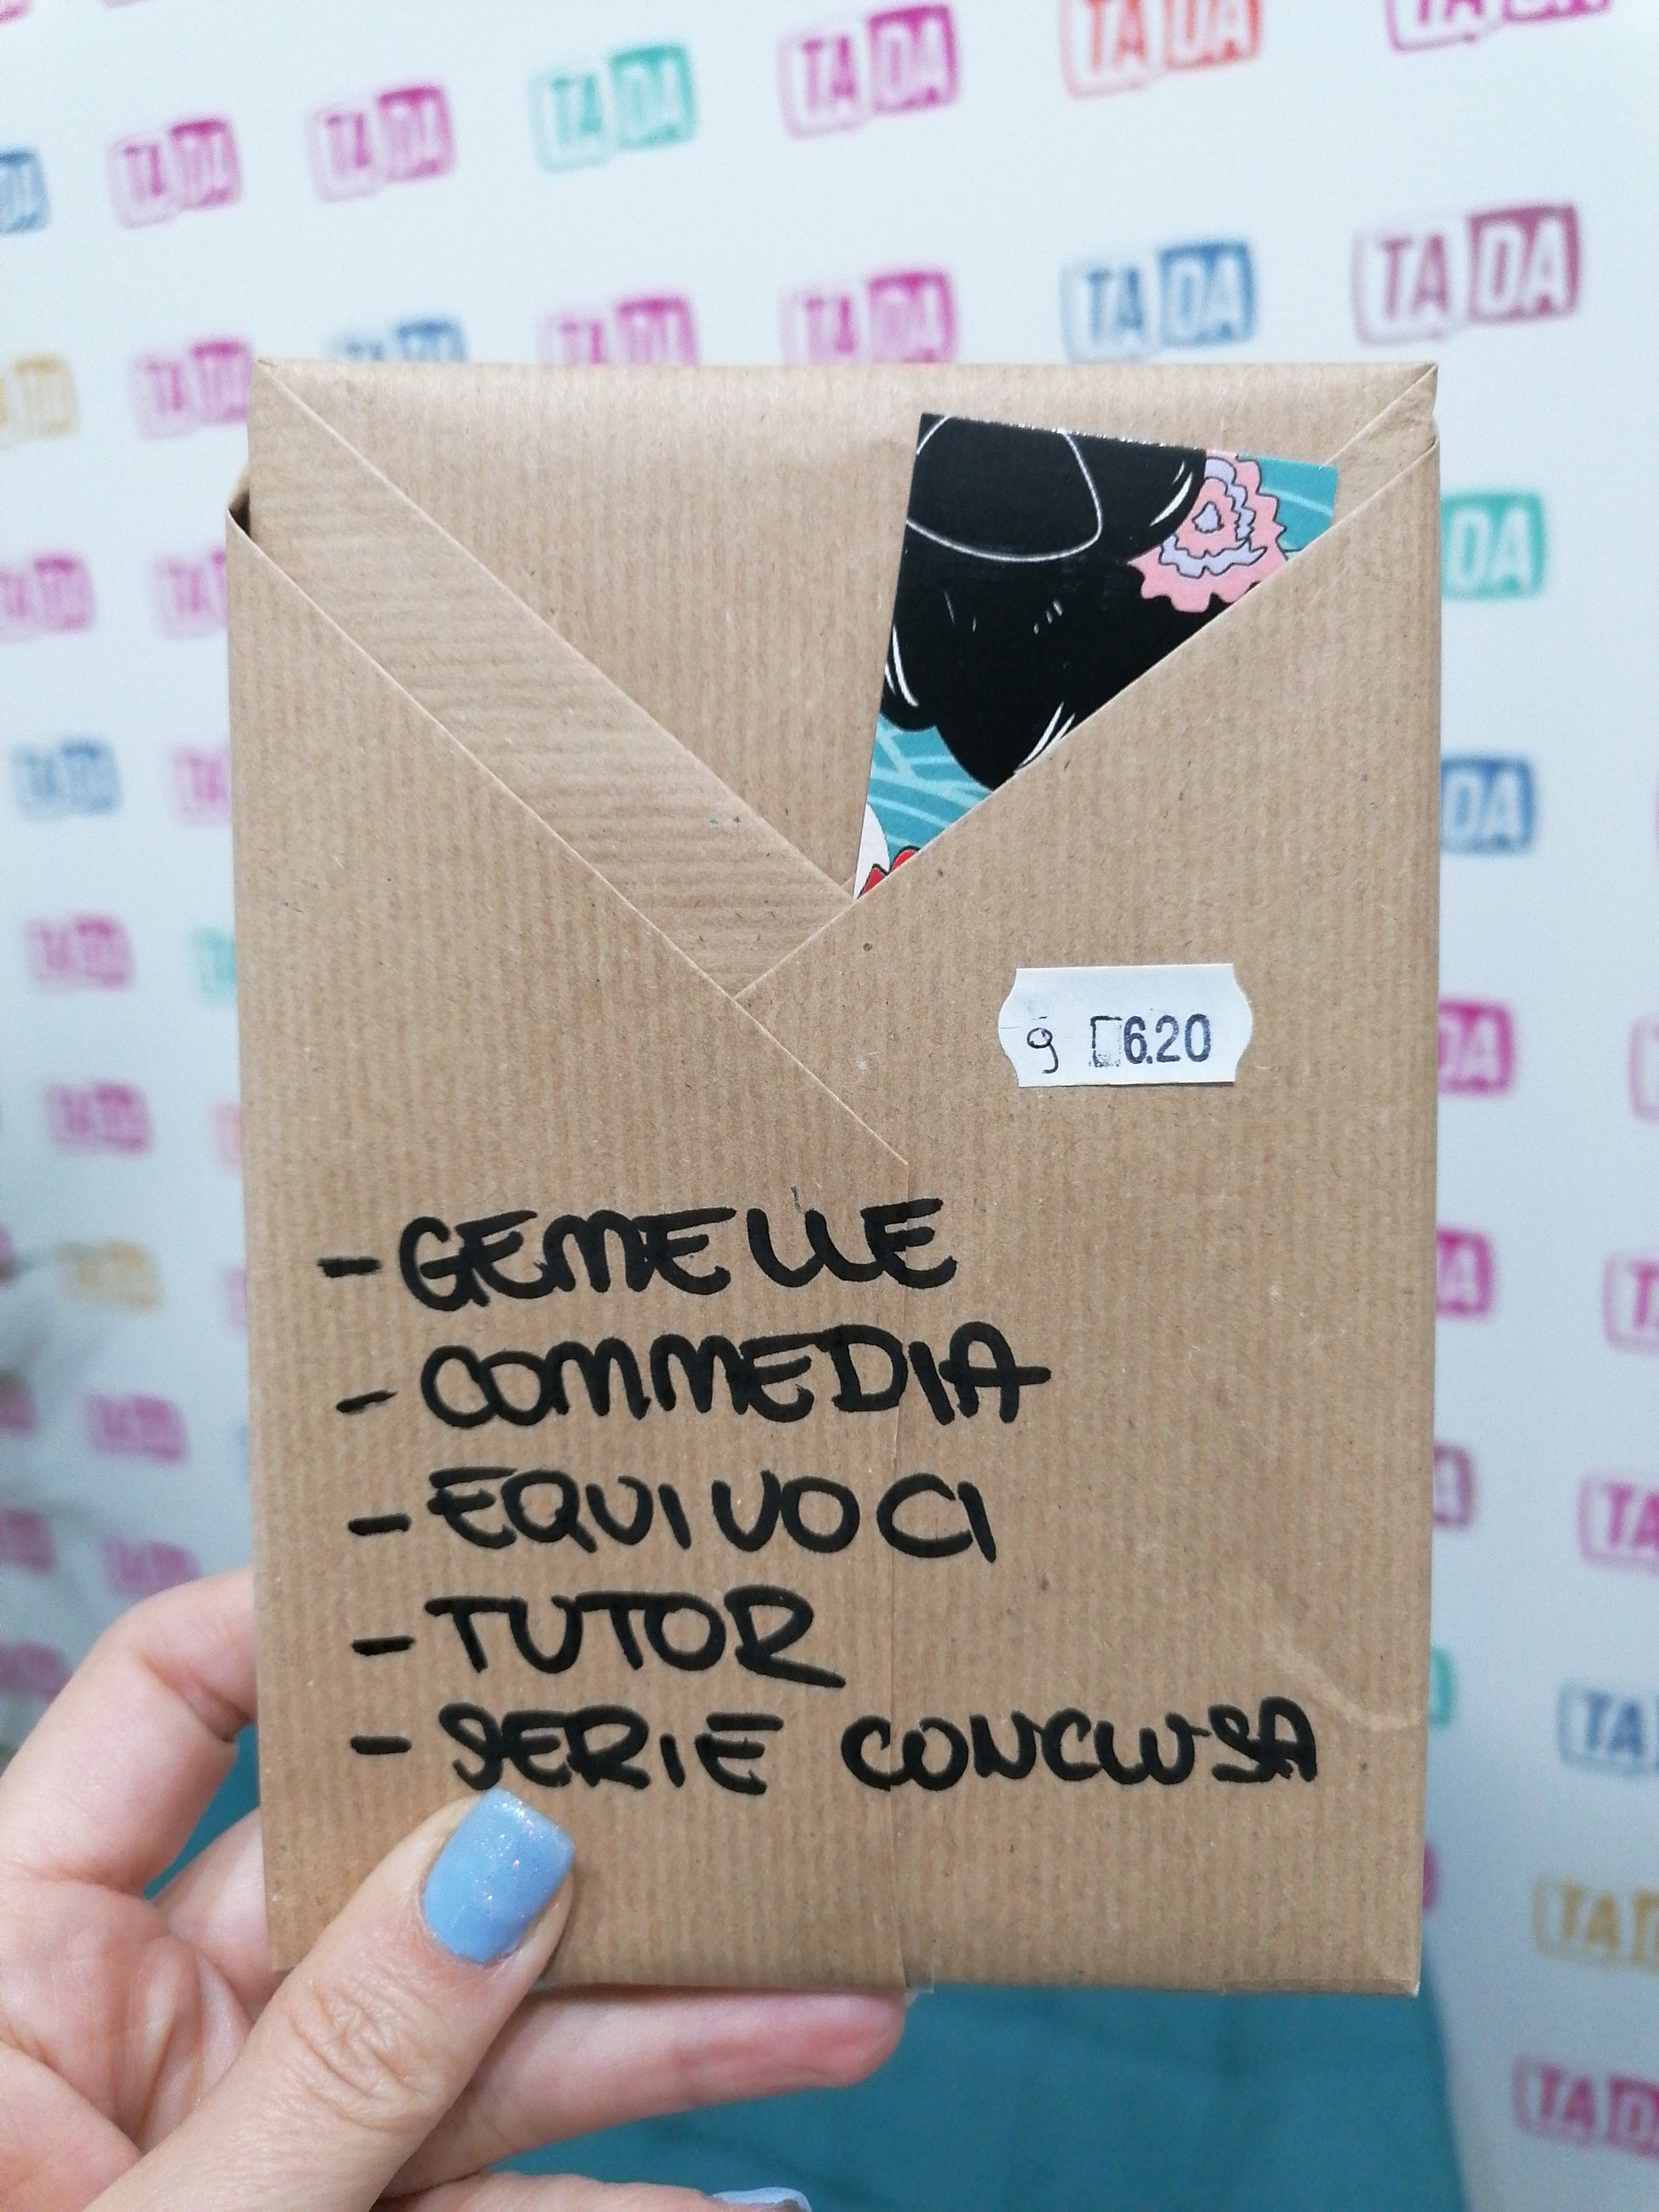 TADA TADA TADA TADA TADA TADA
TADA TADA TADA TADA TADA
DA
DA
g 6.20
- GEMELLE
- COMMEDIA
- EQUIVOCI
- TUTOR
- SERIE CONCLUSA